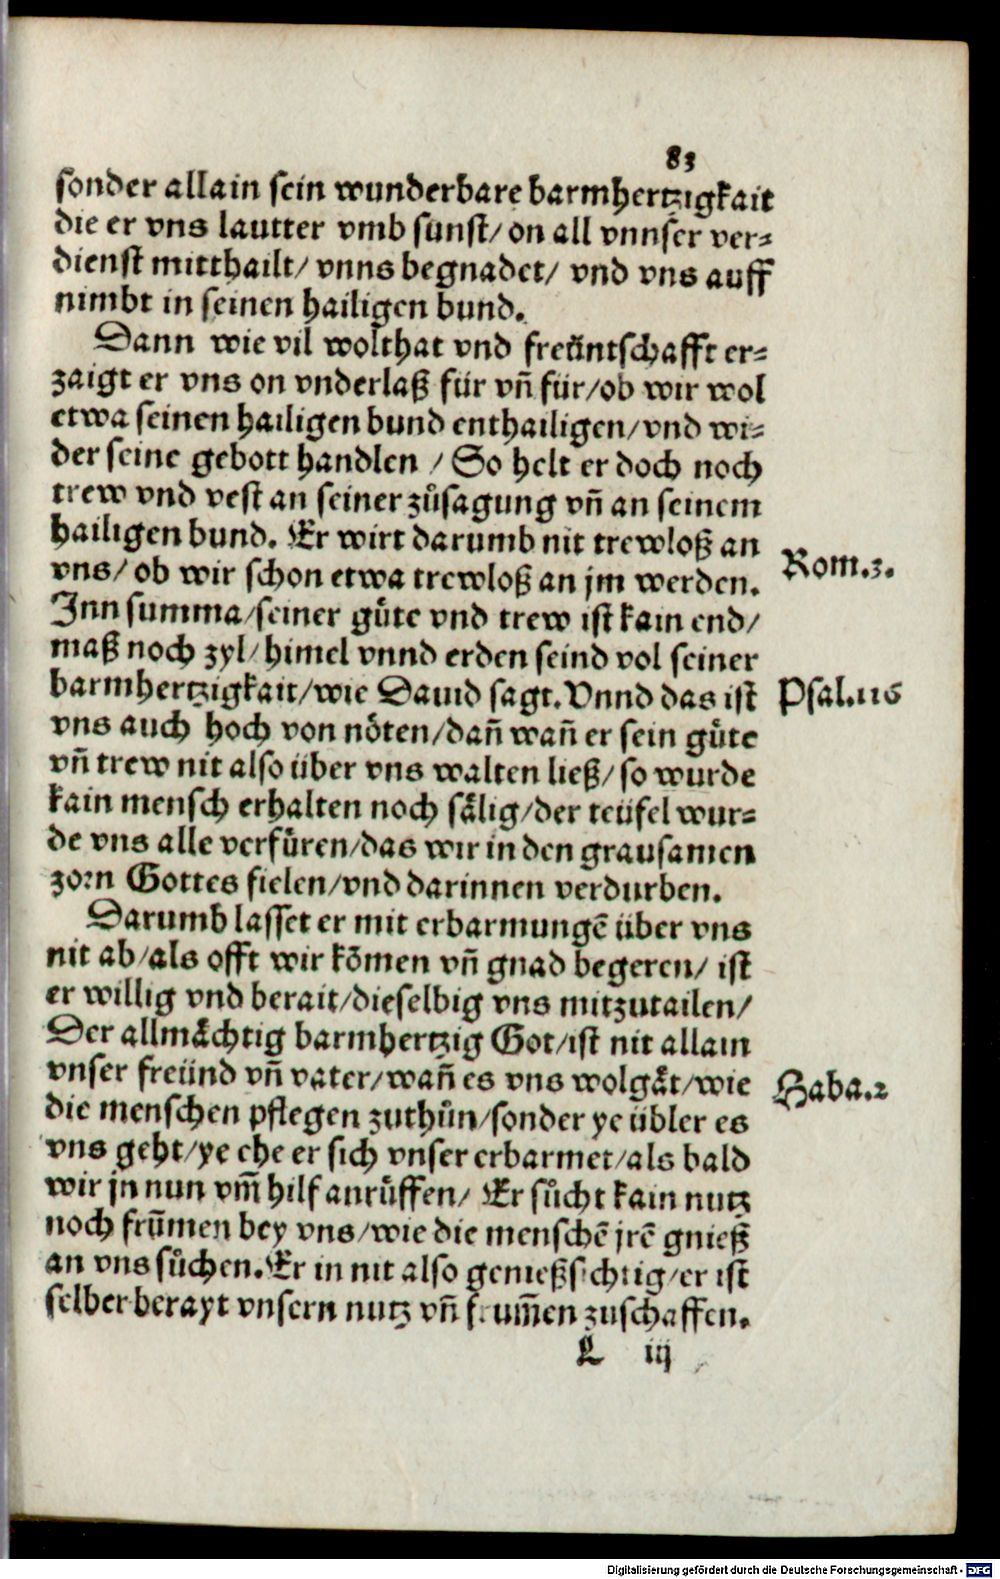 83
sonder allain sein wunderbare barmhertzigkait
die er vns lautter vmb sunst/ on all vnnser ver-
dienst mitthailt/ vnns begnadet/ vnd vns auff
nimbt in seinen hailigen bund.
Dann wie vil wolthat vnd freüntschafft er-
zaigt er vns on vnderlaß für vñ für/ob wir wol
etwa seinen hailigen bund enthailigen/vnd wi-
der seine gebott handlen / So helt er doch noch
trew vnd vest an seiner zůsagung vñ an seinem
hailigen bund. Er wirt darumb nit trewloß an
vns/ ob wir schon etwa trewloß an jm werden.
Rom.3.
Inn summa/seiner gůte vnd trew ist kain end/
maß noch zyl/ himel vnnd erden seind vol seiner
barmhertzigkait/wie Dauid sagt. Vnnd das ist
Psal.116
vns auch hoch von nöten/dañ wañ er sein gůte
vñ trew nit also über vns walten ließ/ so wurde
kain mensch erhalten noch sälig/der teüfel wur-
de vns alle verfüren/das wir in den grausamen
zorn Gottes fielen/vnd darinnen verdurben.
Darumb lasset er mit erbarmungē über vns
nit ab/als offt wir kōmen vñ gnad begeren/ ist
er willig vnd berait/dieselbig vns mitzutailen/
Der allmächtig barmhertzig Got/ist nit allain
vnser freünd vñ vater/wañ es vns wolgät/wie
Haba.2
die menschen pflegen zuthůn/sonder ye übler es
vns geht/ye ehe er sich vnser erbarmet/als bald
wir jn nun vm̃ hilf anrůffen/ Er sůcht kain nutz
noch frūmen bey vns/wie die menschē jrē gnieß
an vns sůchen. Er in nit also genießsichtig/er ist
selber berayt vnsern nutz vñ frum̃en zuschaffen.
L iij
Digitalisierung gefördert durch die Deutsche Forschungsgemeinschaft - DFG